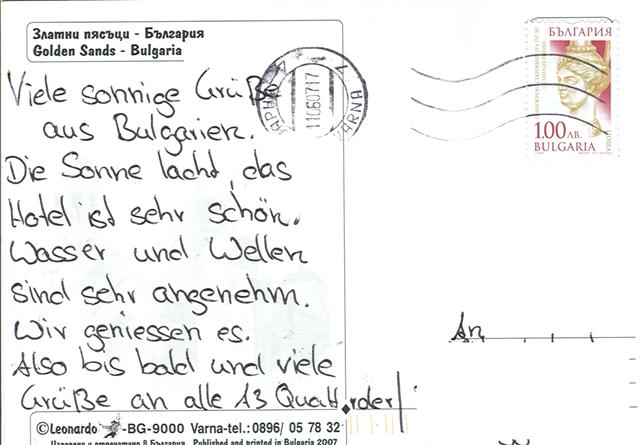 Златни пясъци - България
Golden Sands - Bulgaria
Viele sonnige Grüße
aus Bulgarien.
Die Sonne lacht, das
Hotel ist sehr schön.
Wasser und Wellen
sind sehr angenehm.
Wir geniessen es.
Also bis bald und viele
Grüße an alle 13
VARNA
110607 17
БЪЛГАРИЯ
1.00 ЛВ.
BULGARIA
An
©Leonardo -BG-9000 Varna-tel.:0896/ 05 78 32
Издадено и отпечатано в България Published and printed in Bulgaria 2007